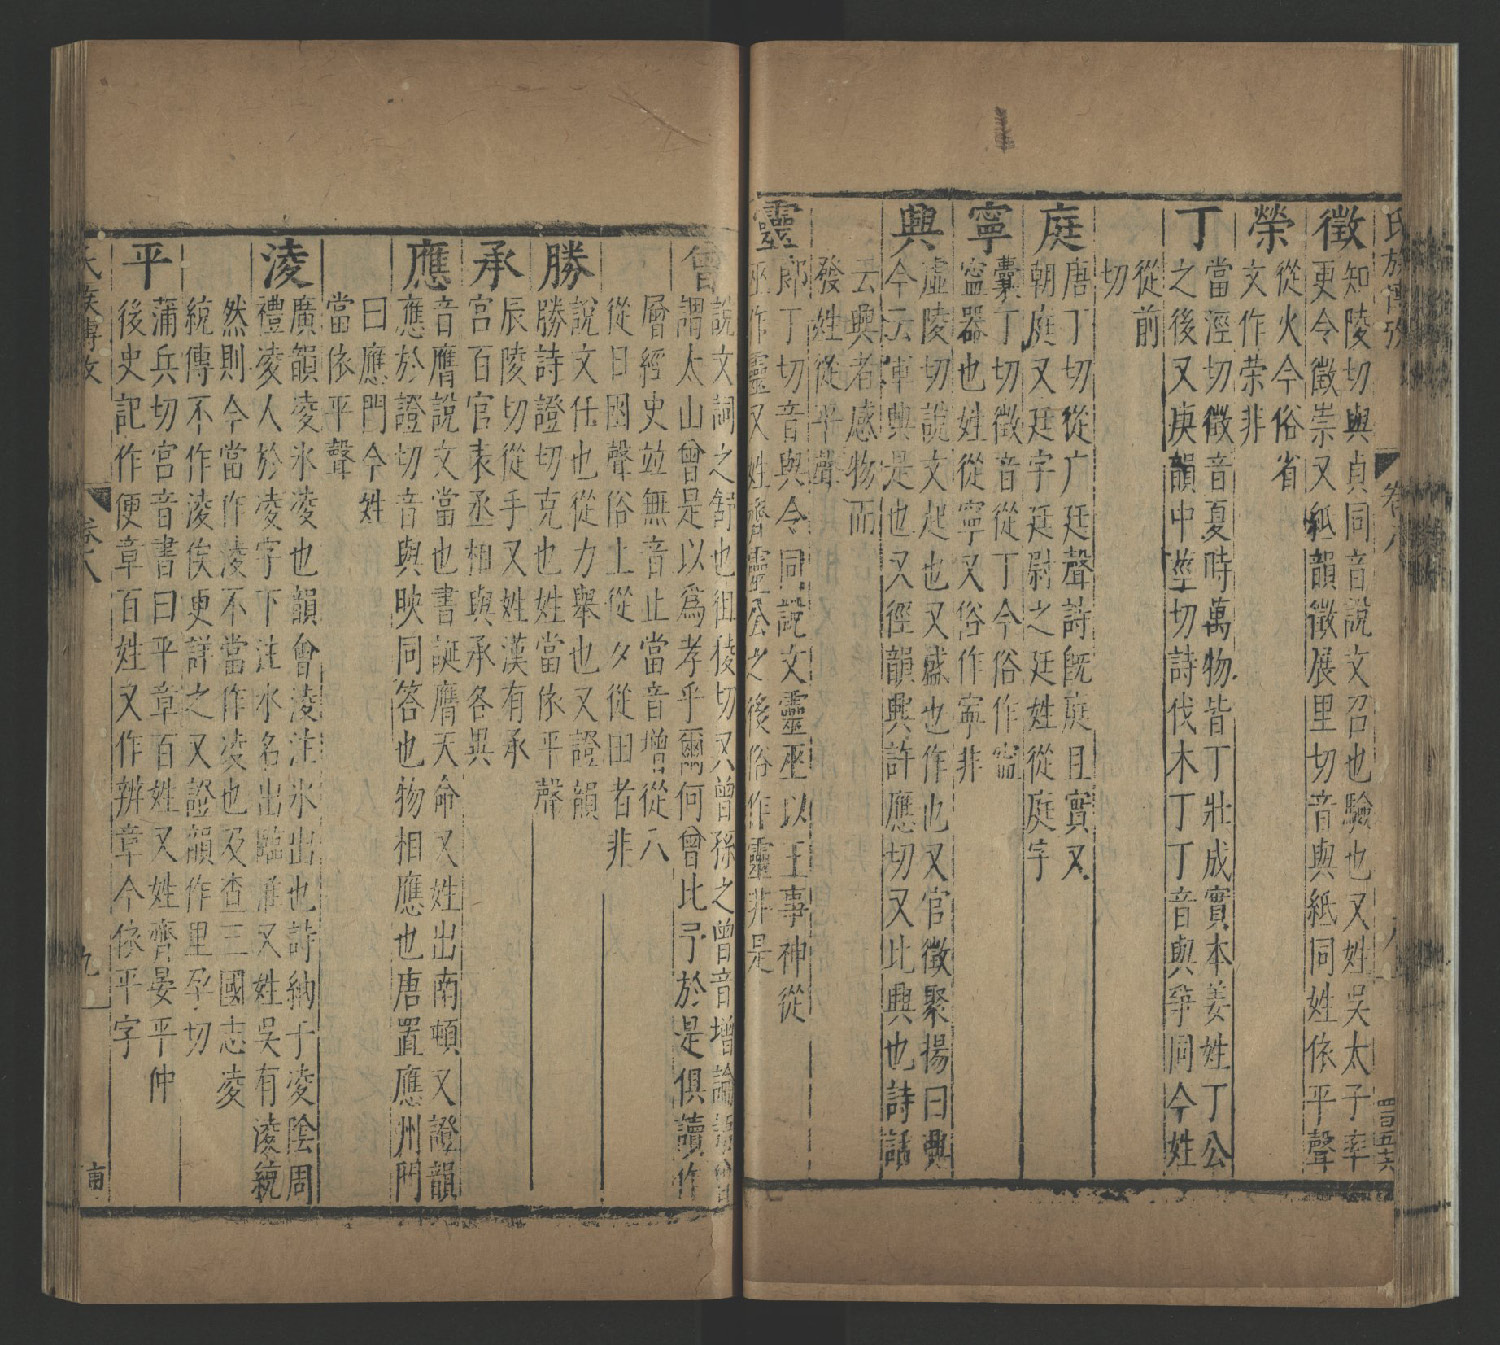 氏族博攷
卷八
八
四百五十六
徵
知陵切與貞同音說文召也驗也又姓吳太子率
更令徵崇又紙韻徵展里切音與紙同姓依平聲
榮
從火今俗省
文作荣非
丁
當涇切徵音夏時萬物皆丁壯成實本姜姓丁公
之後又庚韻中莖切詩伐木丁丁音與爭同今姓
從前
切
庭
唐丁切從广廷聲詩既庭且實又
朝庭又廷字廷尉之廷姓從庭字
寧
囊丁切徵音從丁今俗作寍
寍器也姓從寧又俗作寧非
興
虛陵切說文起也又盛也作也又官徵聚揚曰興
今云車興是也又徑韻興許應切又比興也詩話
云興者感物而
發姓從平聲
靈
郎丁切音與令同說文靈巫以玉事神從
巫作靈又姓齊靈公之後俗作靈非是
曾
說文詞之舒也徂稜切又曾孫之曾音增論語曾
謂太山曾是以爲孝乎爾何曾比予於是俱讀作
層經史並無音止當音增從八
從日囪聲俗上從夕從田者非
勝
說文任也從力舉也又證韻
勝詩證切克也姓當依平聲
承
辰陵切從手又姓漢有承
宮百官表丞相與承各異
應
音膺說文當也書誕膺天命又姓出南頓又證韻
應於證切音與映同答也物相應也唐置應州門
曰應門今姓
當依平聲
淩
廣韻凌冰淩也韻會淩注冰出也詩納于凌陰周
禮凌人於凌字下注水名出臨淮又姓吳有淩統
然則今當作淩不當作凌也及查三國志凌
統傳不作淩俟更詳之又證韻作里孕切
平
蒲兵切宮音書曰平章百姓又姓齊晏平仲
後史記作便章百姓又作辨章今依平字
氏族博攷
卷八
九
南